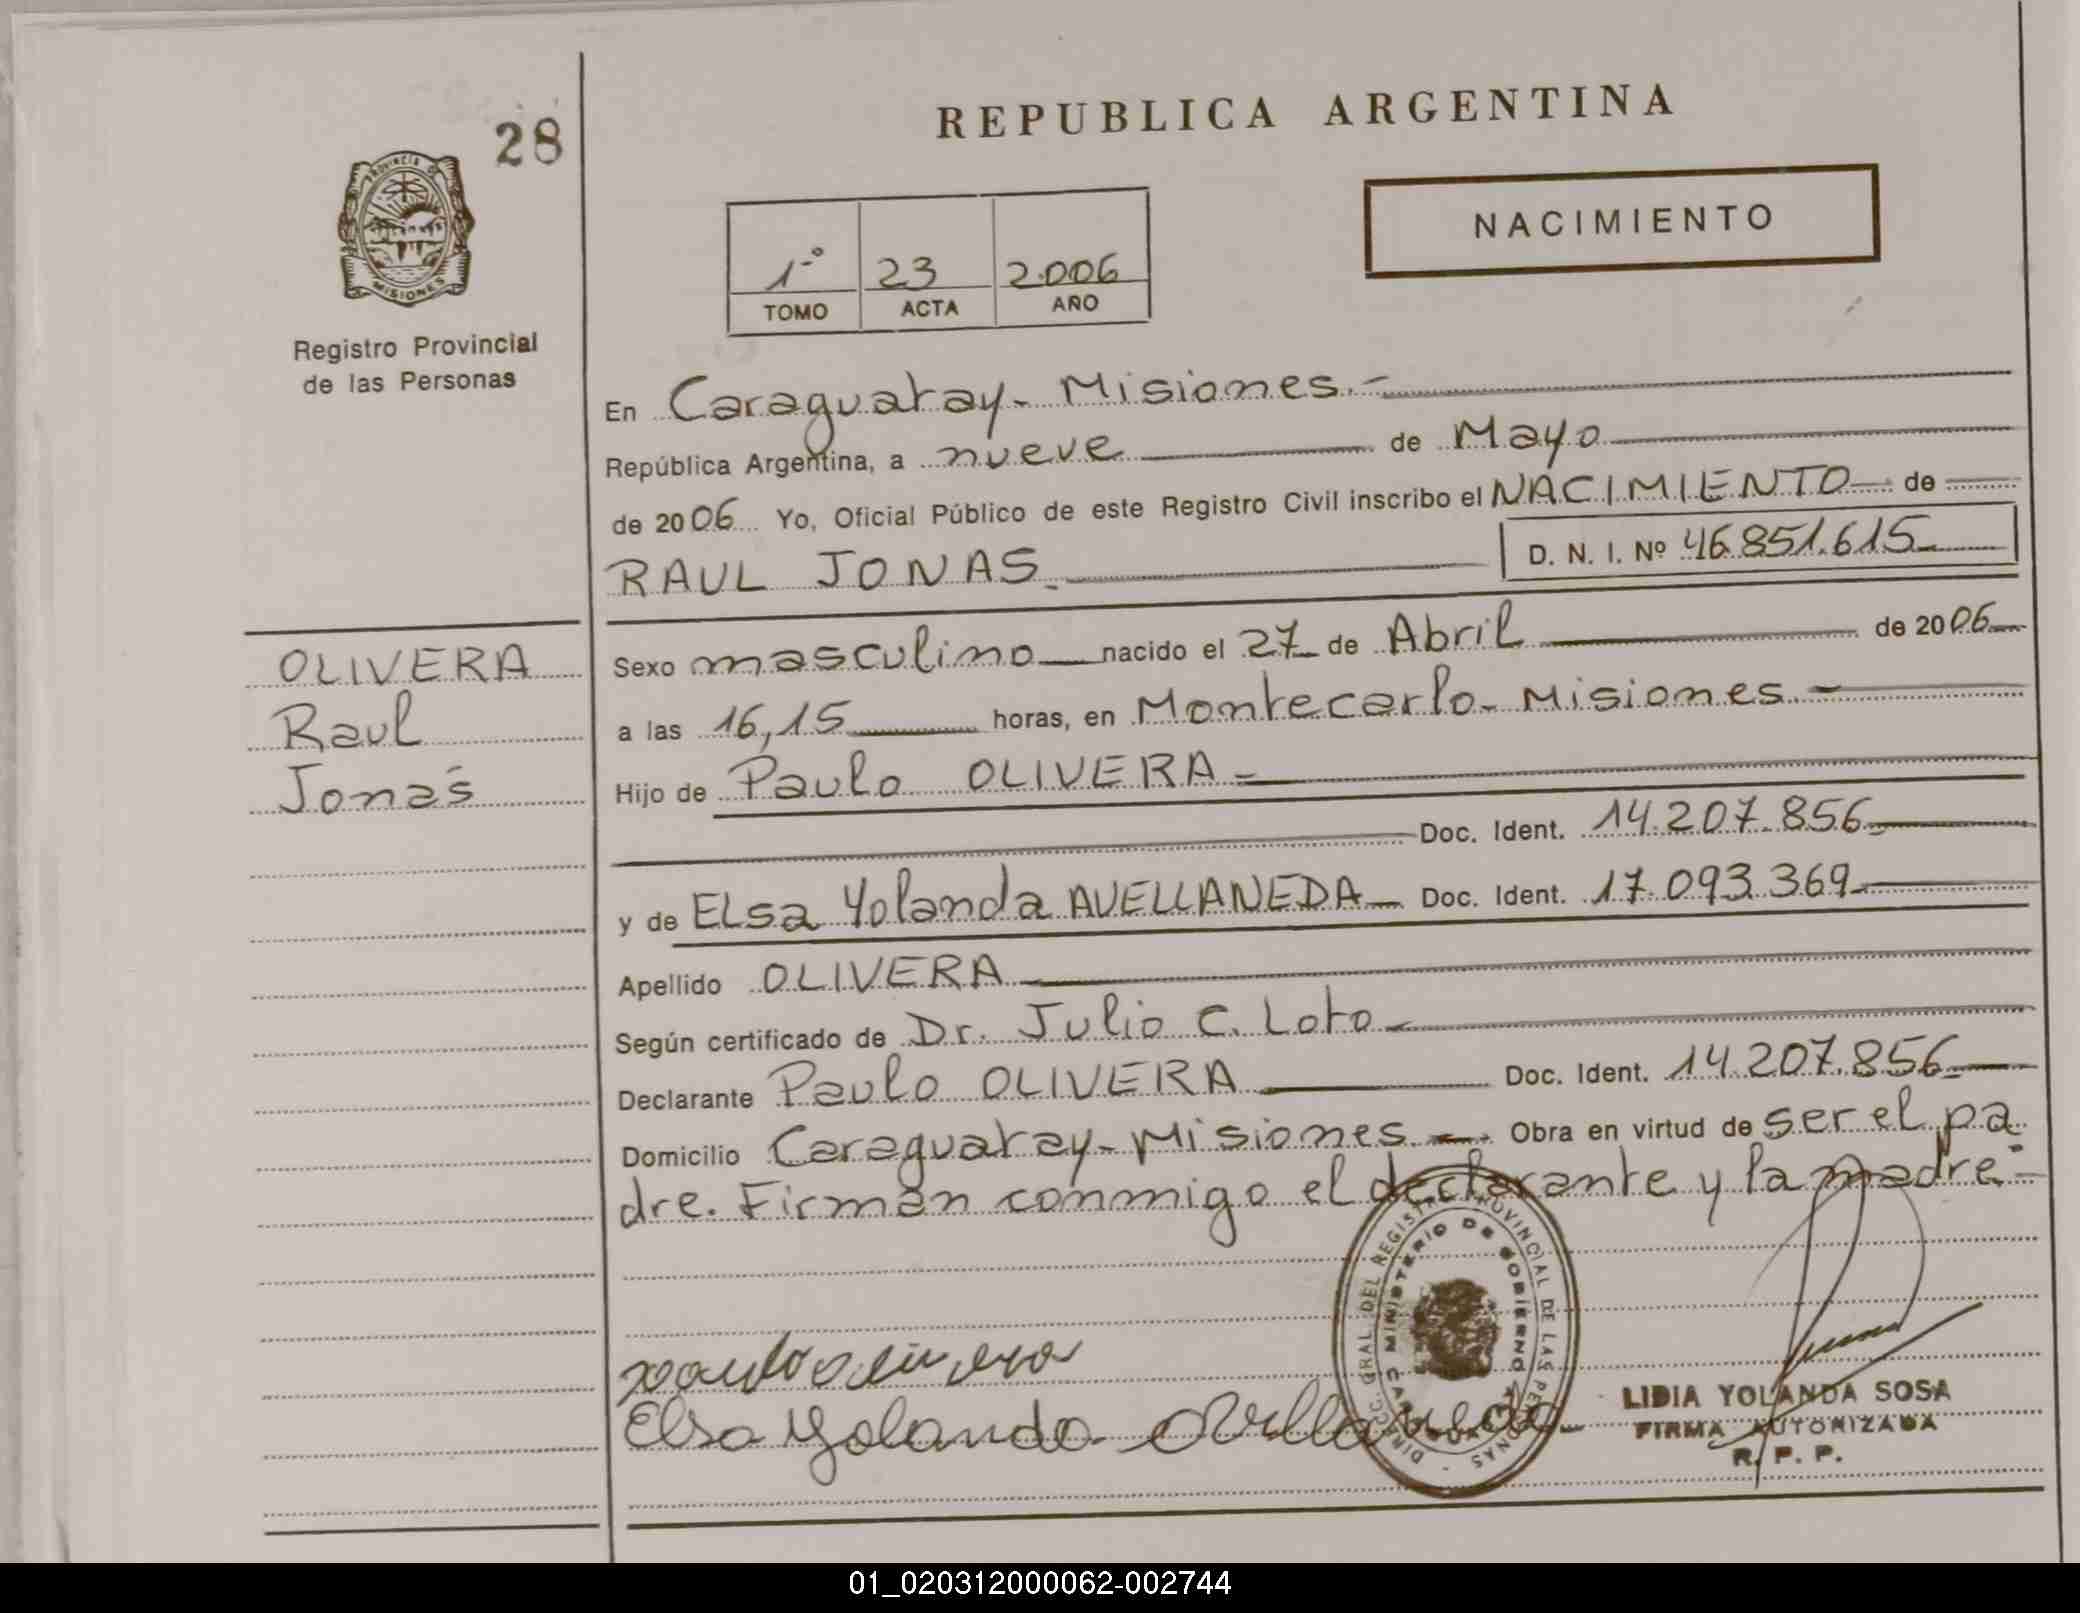 28
PROVINCIA DE
MISIONES
Registro Provincial
de las Personas
OLIVERA
Raul
Jonás
REPUBLICA ARGENTINA
NACIMIENTO
1º 23 2.006
TOMO ACTA AÑO
En Caraguatay - Misiones.-
República Argentina, a nueve de Mayo
de 2006 Yo, Oficial Público de este Registro Civil inscribo el NACIMIENTO de
RAUL JONAS. D. N. I. Nº 46.851.615
Sexo masculino nacido el 27 de Abril de 2006
a las 16,15 horas, en Montecarlo - Misiones.-
Hijo de Paulo OLIVERA -
Doc. Ident. 14.207.856
y de ELsa Yolanda AVELLANEDA Doc. Ident. 17.093.369
Apellido OLIVERA
Según certificado de Dr. Julio C. Loto
Declarante Paulo OLIVERA Doc. Ident. 14.207.856
Domicilio Caraguatay - Misiones -. Obra en virtud de ser el pa
dre. Firman conmigo el declarante y la madre.-
paulo olivera
Elsa Yolanda Avellaneda
DIRECC. GRAL. DEL REGISTRO PROVINCIAL DE LAS PERSONAS -
MINISTERIO DE GOBIERNO
LIDIA YOLANDA SOSA
FIRMA AUTORIZADA
R. P. P.
01_020312000062-002744